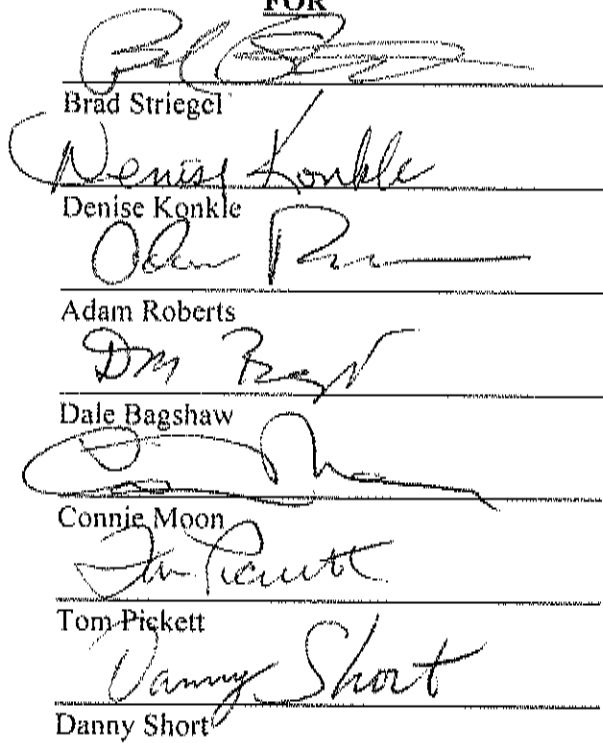 FOR
Brad Striegel
Denise Konkle
Denise Konkle
Adam Roberts
Dale Bagshaw
Connie Moon
Tom Pickett
Tom Pickett
Danny Short
Danny Short